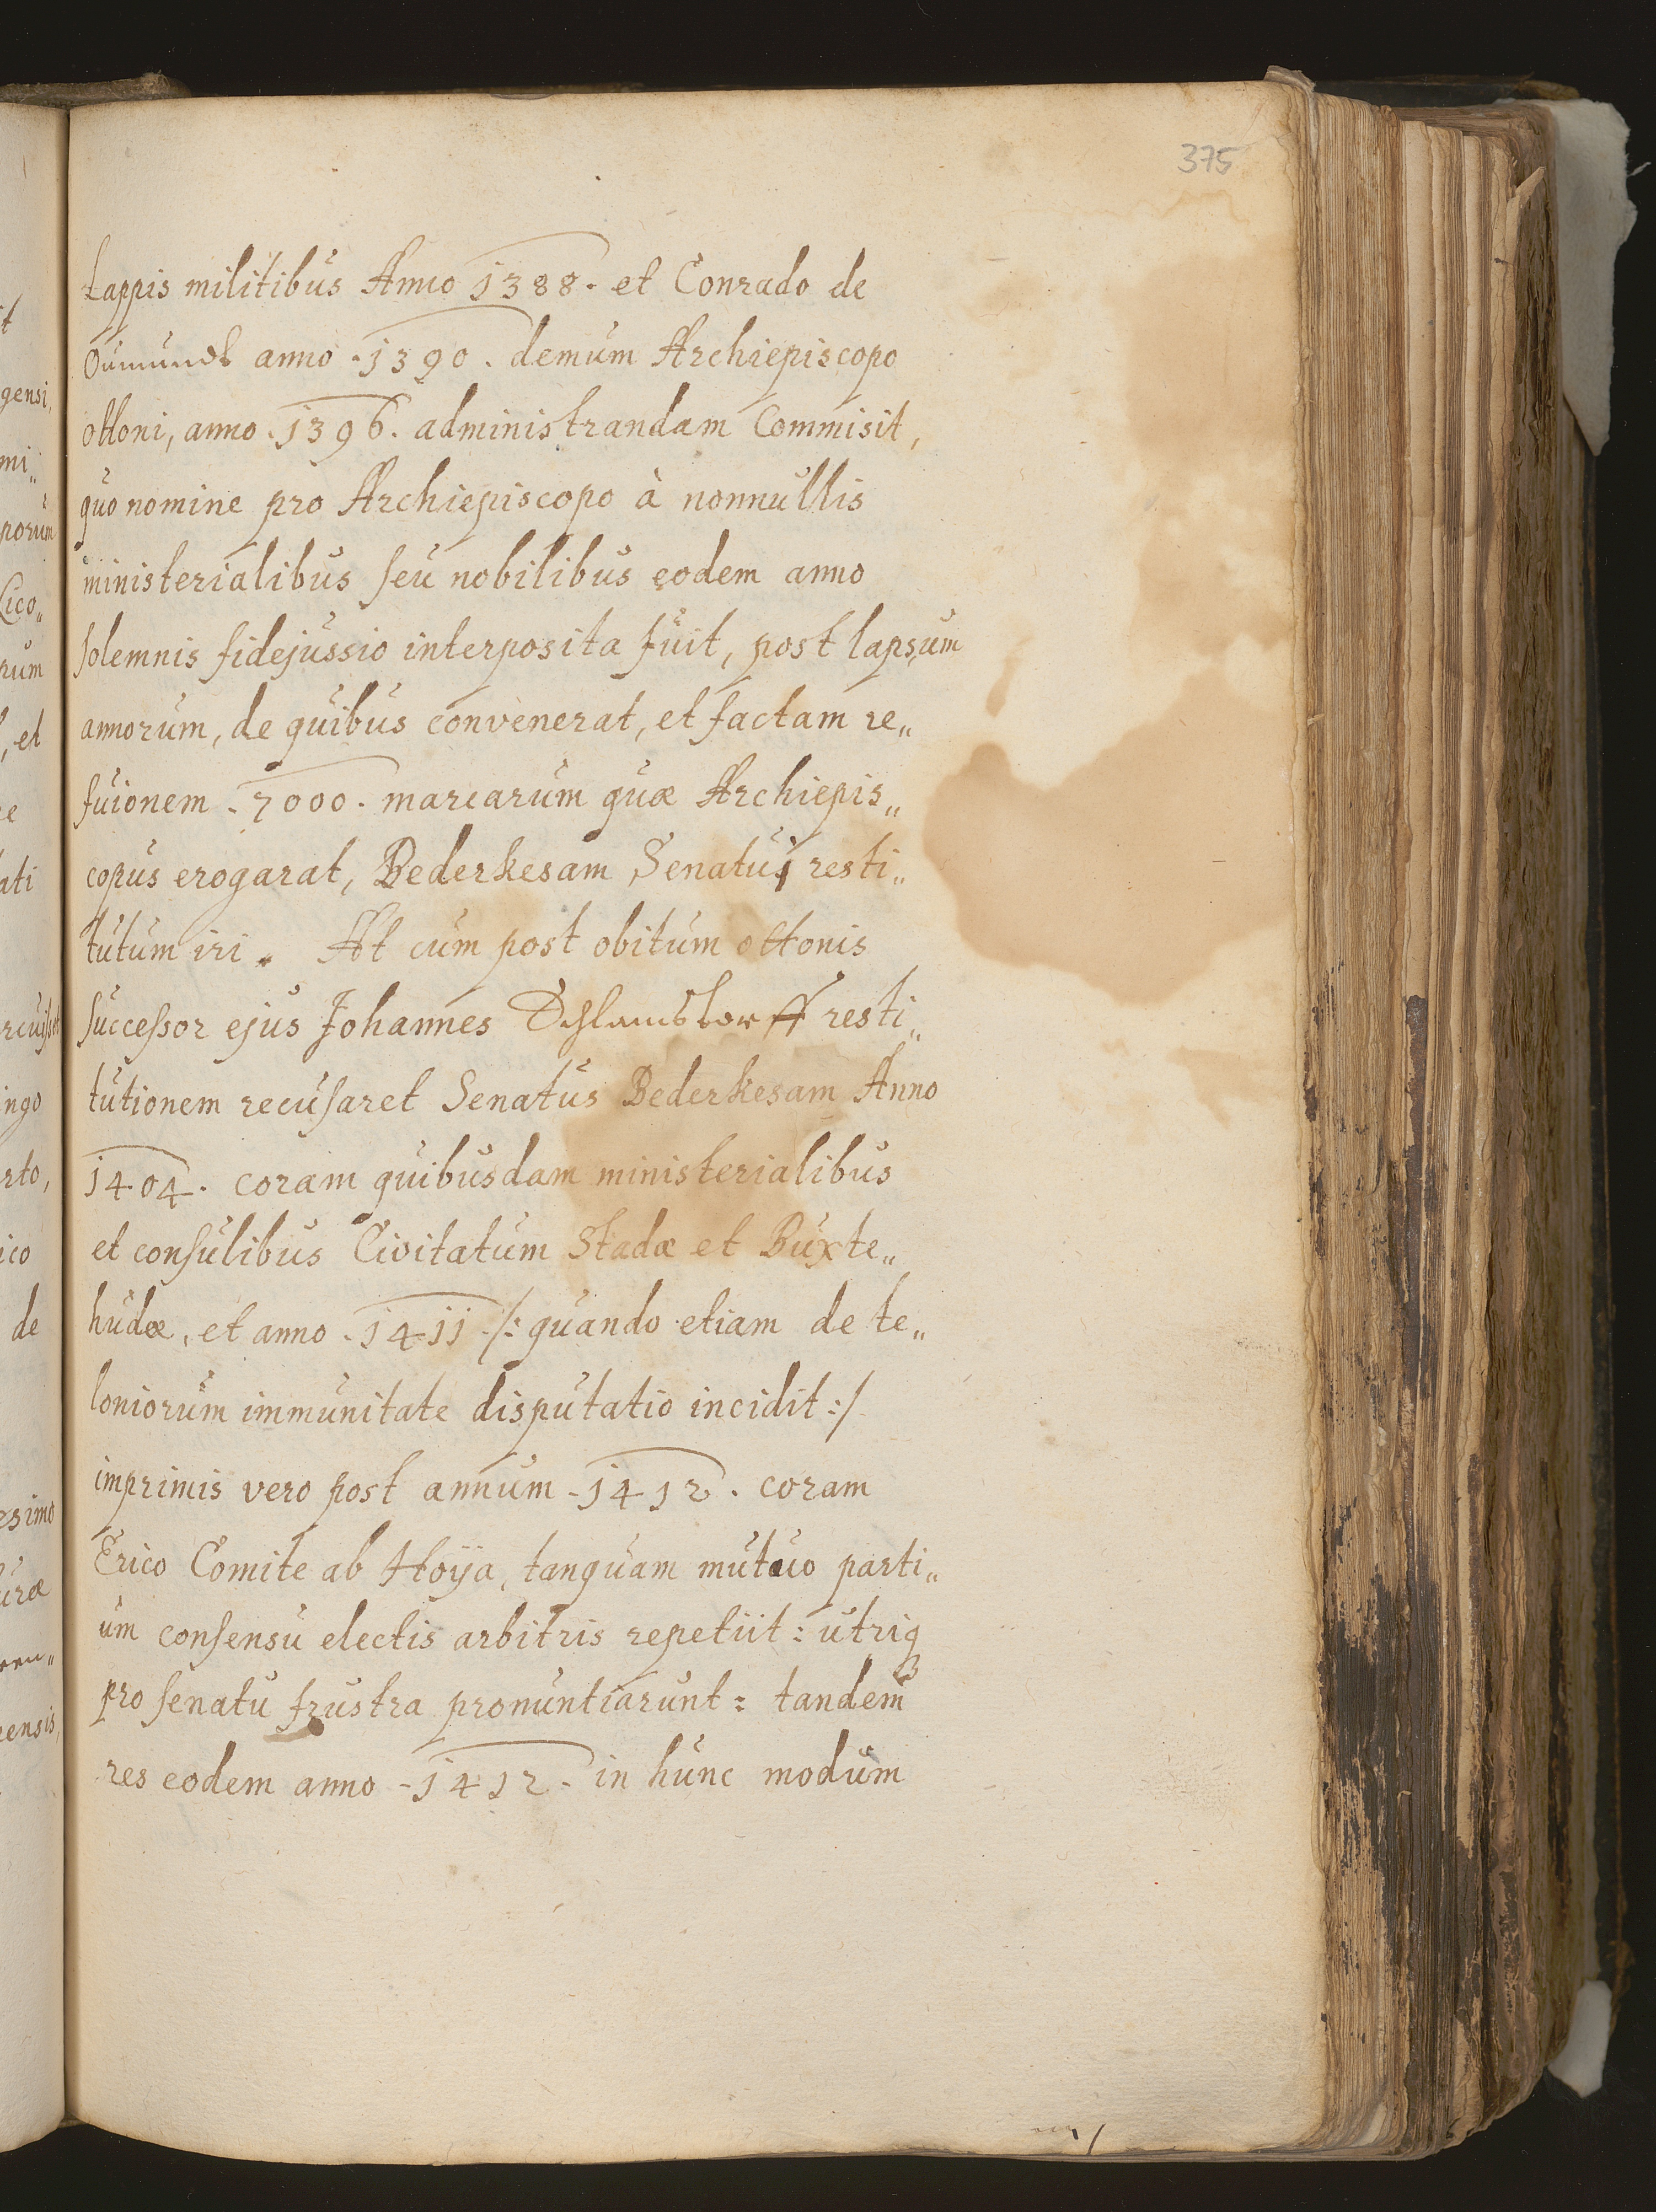 375
Lappis militibus Anno 1388. et Conrado de
Oumundt anno .1390. demum Archiepiscopo
ottoni, anno .1396. administrandam Commisit,
quo nomine pro Archiepiscopo à nonnullis
ministerialibus seu nobilibus eodem anno
solemnis fidejussio interposita fuit, post lapsum
annorum, de quibus convenerat, et factam re„
fuionem .7000. marcarum quæ Archiepis„
copus erogarat, Bederkesam Senatui resti„
tutum iri. At cum post obitum ottonis
successor ejus Johannes resti„
tutionem recusaret Senatus Bederkesam Anno
1404. coram quibusdam ministerialibus
et consulibus Civitatum Stadæ et Buxte„
hudæ, et anno .1411 /: quando etiam de te„
loniorum immunitate disputatio incidit :/
imprimis vero post annum .1412. coram
Erico Comite ab Hoÿa, tanquam mutuo parti„
um consensu electis arbitris repetiit : utriq
pro senatu frustra pronuntiarunt : tandem
res eodem anno .1412. in hunc modum